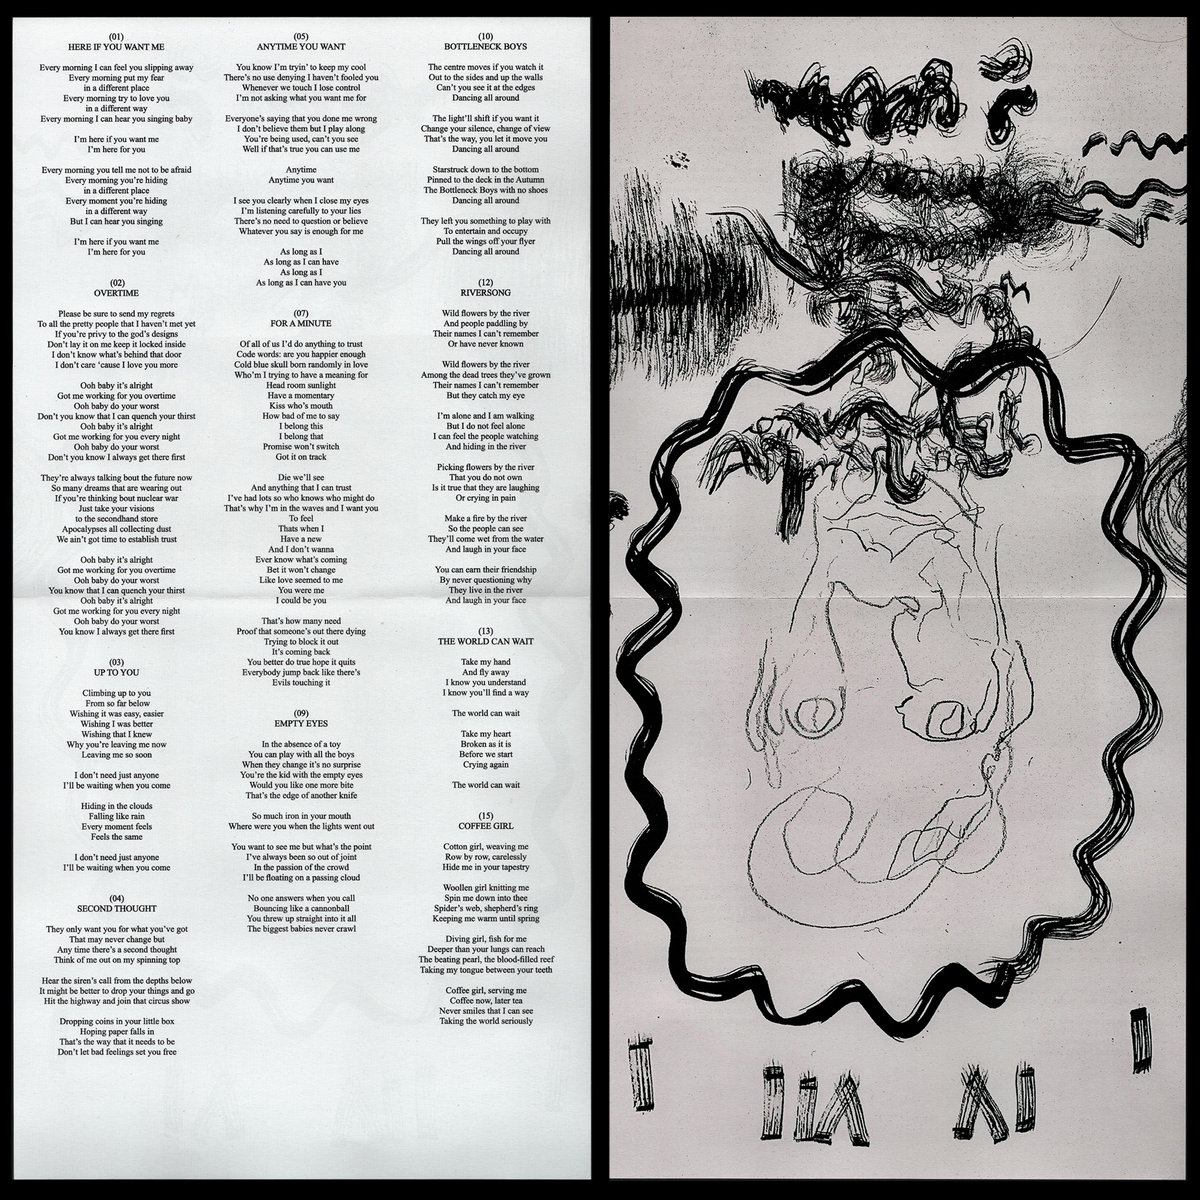 (01)
HERE IF YOU WANT ME
Every morning I can feel you slipping away
Every morning put my fear
in a different place
Every morning try to love you
in a different way
Every morning I can hear you singing baby
I'm here if you want me
I'm here for you
Every morning you tell me not to be afraid
Every morning you're hiding
in a different place
Every moment you're hiding
in a different way
But I can hear you singing
I'm here if you want me
I'm here for you
(02)
OVERTIME
Please be sure to send my regrets
To all the pretty people that I haven't met yet
If you're privy to the god's designs
Don't lay it on me keep it locked inside
I don't know what's behind that door
I don't care 'cause I love you more
Ooh baby it's alright
Got me working for you overtime
Ooh baby do your worst
Don't you know that I can quench your thirst
Ooh baby it's alright
Got me working for you every night
Ooh baby do your worst
Don't you know I always get there first
They're always talking bout the future now
So many dreams that are wearing out
If you're thinking bout nuclear war
Just take your visions
to the secondhand store
Apocalypses all collecting dust
We ain't got time to establish trust
Ooh baby it's alright
Got me working for you overtime
Ooh baby do your worst
You know that I can quench your thirst
Ooh baby it's alright
Got me working for you every night
Ooh baby do your worst
You know I always get there first
(03)
UP TO YOU
Climbing up to you
From so far below
Wishing it was easy, easier
Wishing I was better
Wishing that I knew
Why you're leaving me now
Leaving me so soon
I don't need just anyone
I'll be waiting when you come
Hiding in the clouds
Falling like rain
Every moment feels
Feels the same
I don't need just anyone
I'll be waiting when you come
(04)
SECOND THOUGHT
They only want you for what you've got
That may never change but
Any time there's a second thought
Think of me out on my spinning top
Hear the siren's call from the depths below
It might be better to drop your things and go
Hit the highway and join that circus show
Dropping coins in your little box
Hoping paper falls in
That's the way that it needs to be
Don't let bad feelings set you free
(05)
ANYTIME YOU WANT
You know I'm tryin' to keep my cool
There's no use denying I haven't fooled you
Whenever we touch I lose control
I'm not asking what you want me for
Everyone's saying that you done me wrong
I don't believe them but I play along
You're being used, can't you see
Well if that's true you can use me
Anytime
Anytime you want
I see you clearly when I close my eyes
I'm listening carefully to your lies
There's no need to question or believe
Whatever you say is enough for me
As long as I
As long as I can have
As long as I
As long as I can have you
(07)
FOR A MINUTE
Of all of us I'd do anything to trust
Code words: are you happier enough
Cold blue skull born randomly in love
Who'm I trying to have a meaning for
Head room sunlight
Have a momentary
Kiss who's mouth
How bad of me to say
I belong this
I belong that
Promise won't switch
Got it on track
Die we'll see
And anything that I can trust
I've had lots so who knows who might do
That's why I'm in the waves and I want you
To feel
Thats when I
Have a new
And I don't wanna
Ever know what's coming
Bet it won't change
Like love seemed to me
You were me
I could be you
That's how many need
Proof that someone's out there dying
Trying to block it out
It's coming back
You better do true hope it quits
Everybody jump back like there's
Evils touching it
(09)
EMPTY EYES
In the absence of a toy
You can play with all the boys
When they change it's no surprise
You're the kid with the empty eyes
Would you like one more bite
That's the edge of another knife
So much iron in your mouth
Where were you when the lights went out
You want to see me but what's the point
I've always been so out of joint
In the passion of the crowd
I'll be floating on a passing cloud
No one answers when you call
Bouncing like a cannonball
You threw up straight into it all
The biggest babies never crawl
(10)
BOTTLENECK BOYS
The centre moves if you watch it
Out to the sides and up the walls
Can't you see it at the edges
Dancing all around
The light'll shift if you want it
Change your silence, change of view
That's the way, you let it move you
Dancing all around
Starstruck down to the bottom
Pinned to the deck in the Autumn
The Bottleneck Boys with no shoes
Dancing all around
They left you something to play with
To entertain and occupy
Pull the wings off your flyer
Dancing all around
(12)
RIVERSONG
Wild flowers by the river
And people paddling by
Their names I can't remember
Or have never known
Wild flowers by the river
Among the dead trees they've grown
Their names I can't remember
But they catch my eye
I'm alone and I am walking
But I do not feel alone
I can feel the people watching
And hiding in the river
Picking flowers by the river
That you do not own
Is it true that they are laughing
Or crying in pain
Make a fire by the river
So the people can see
They'll come wet from the water
And laugh in your face
You can earn their friendship
By never questioning why
They live in the river
And laugh in your face
(13)
THE WORLD CAN WAIT
Take my hand
And fly away
I know you understand
I know you'll find a way
The world can wait
Take my heart
Broken as it is
Before we start
Crying again
The world can wait
(15)
COFFEE GIRL
Cotton girl, weaving me
Row by row, carelessly
Hide me in your tapestry
Woollen girl knitting me
Spin me down into thee
Spider's web, shepherd's ring
Keeping me warm until spring
Diving girl, fish for me
Deeper than your lungs can reach
The beating pearl, the blood-filled reef
Taking my tongue between your teeth
Coffee girl, serving me
Coffee now, later tea
Never smiles that I can see
Taking the world seriously